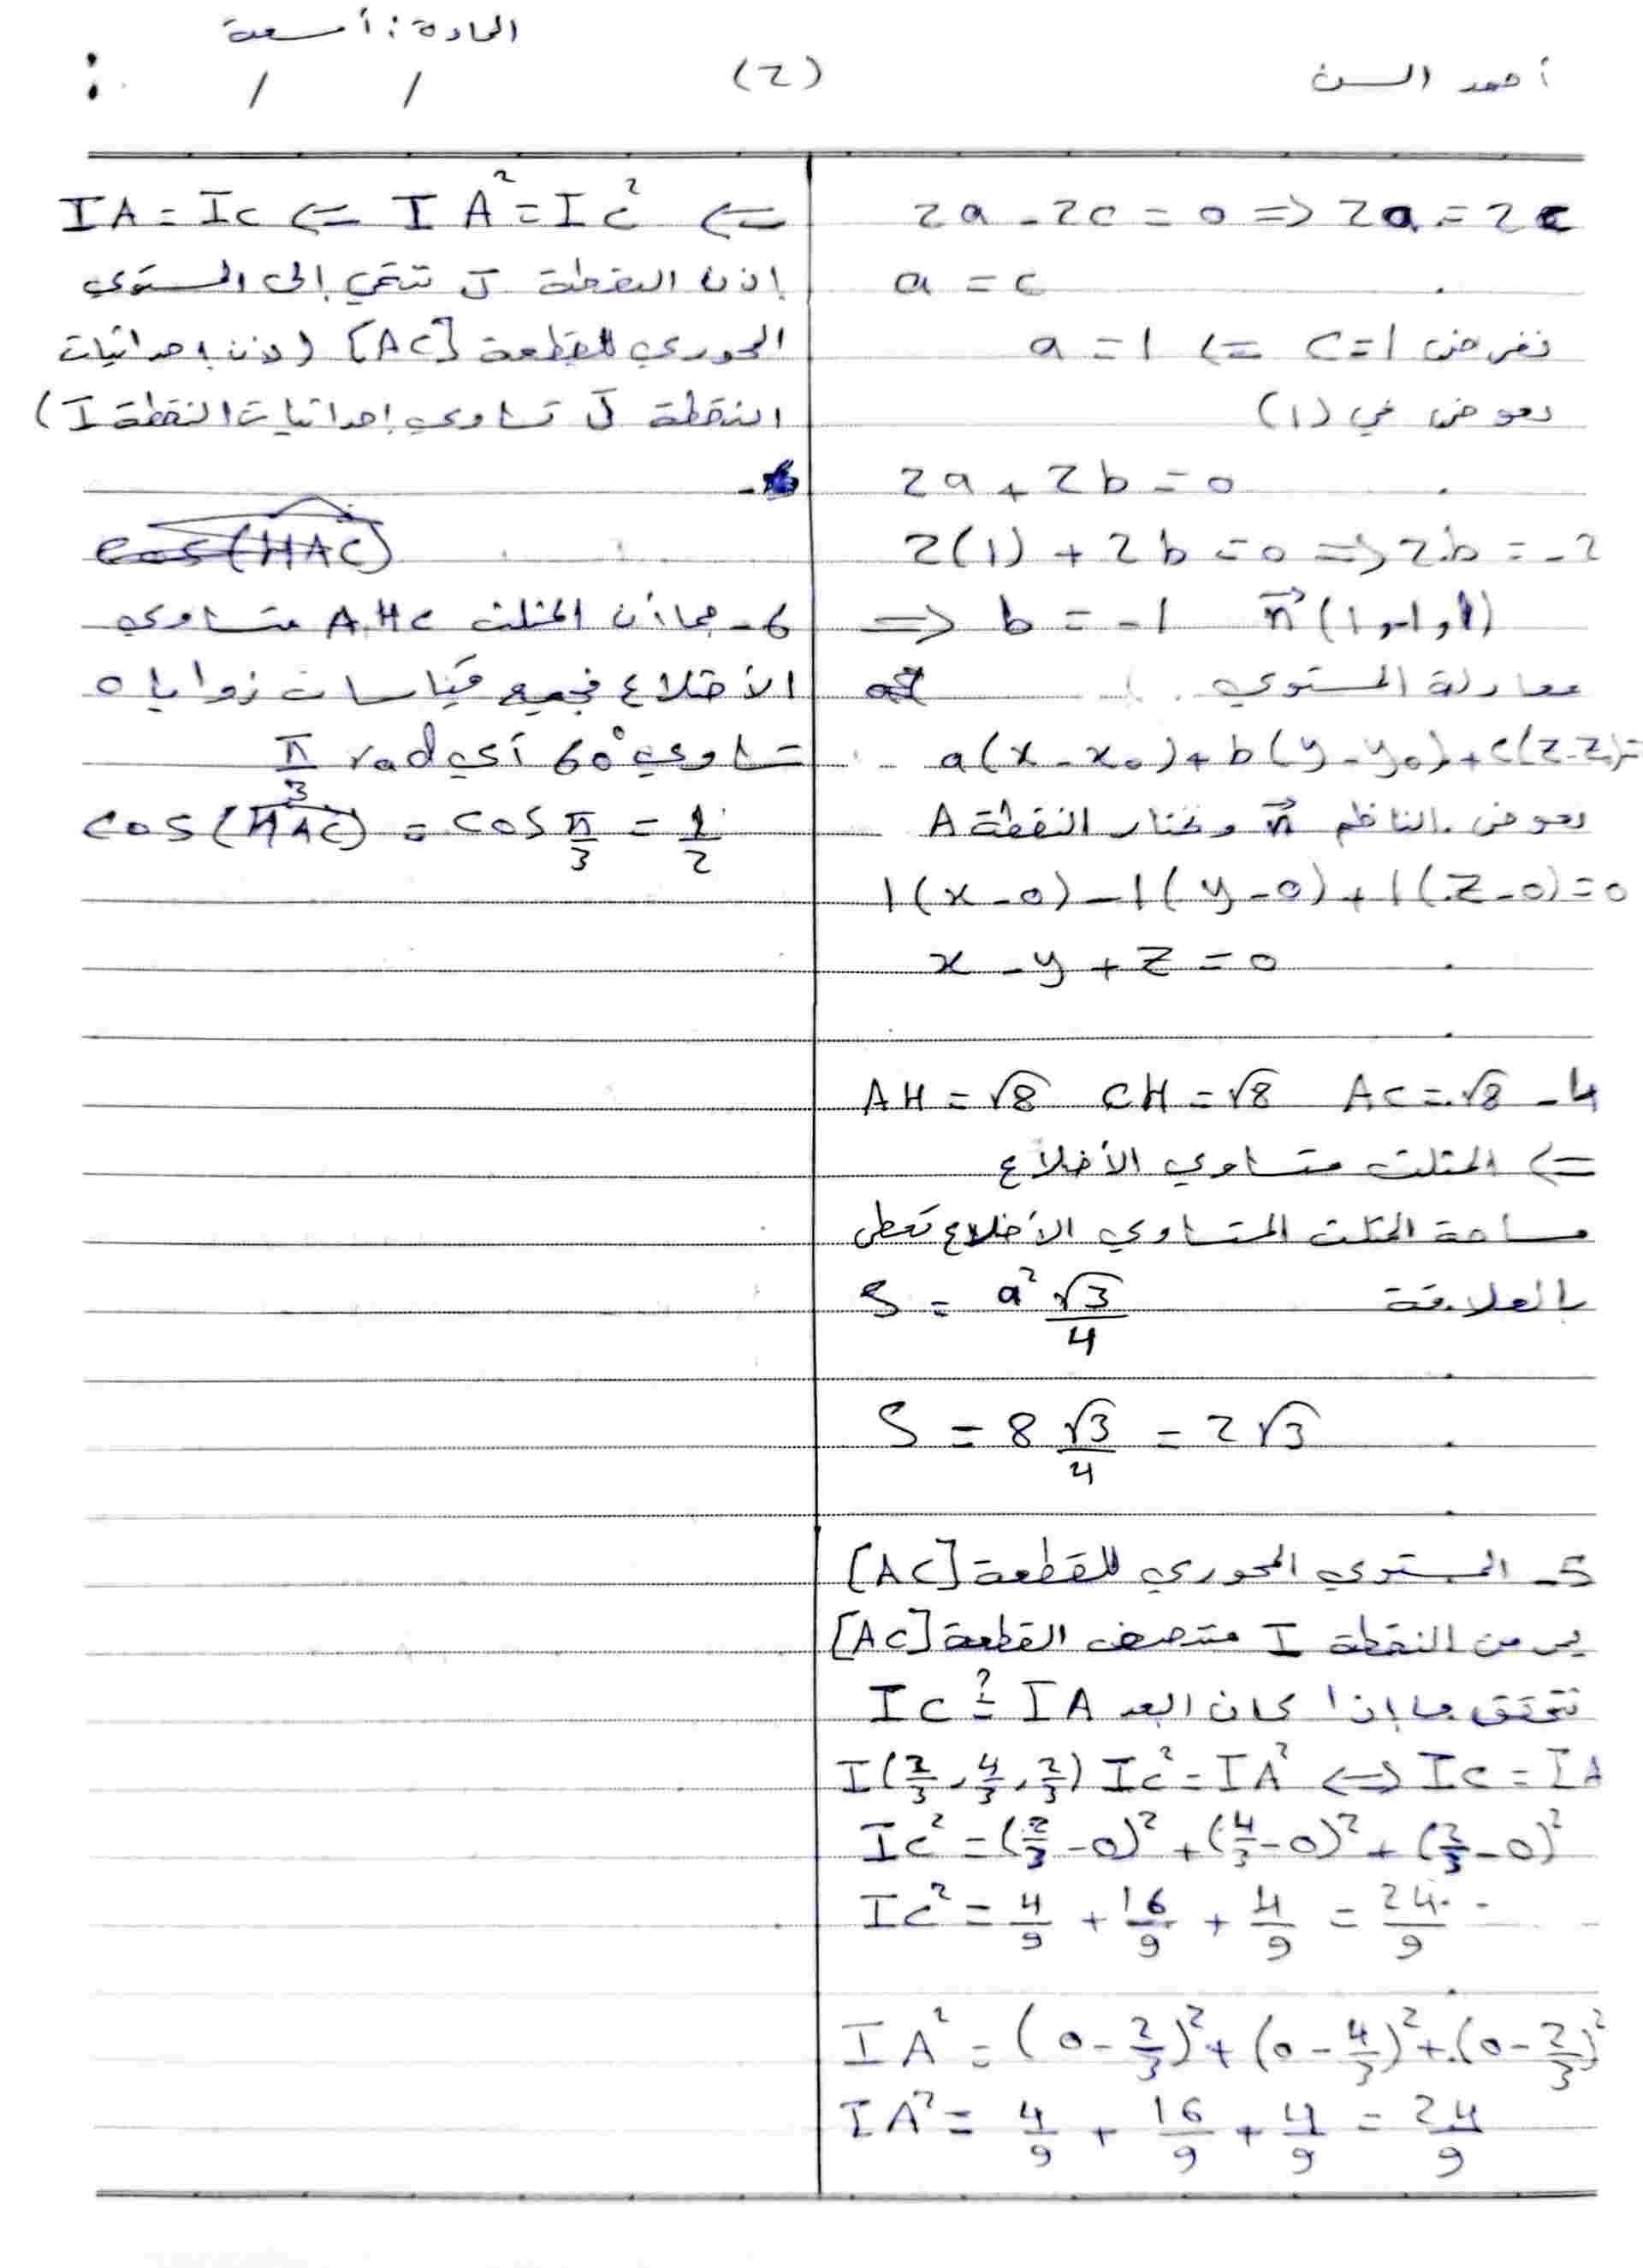 المادة: أسعدة
أحمد السن
(2)
/ / :
2a - 2c = 0 => 2a = 2c
a = c
نفرض c=1 => a=1
نعوض في (1)
2a + 2b = 0
2(1) + 2b = 0 => 2b = -2
=> b = -1 n⃗(1,-1,1)
معادلة المستوي
a(x-x₀)+b(y-y₀)+c(z-z₀)=
نعوض الناظم n⃗ ونختار النقطة A
1(x-0)-1(y-0)+1(z-0)=0
x - y + z = 0
4- AC=√8 CH=√8 AH=√8
=> المثلث متساوي الأضلاع
مساحة المثلث المتساوي الأضلاع تعطى
بالعلاقة S = a² √3/4
S = 8 √3/4 = 2√3
5- المستوي المحوري للقطعة [AC]
يمر من النقطة I منتصف القطعة [AC]
نتحقق ما إذا كان البعد IC ≟ IA
I(2/3, 4/3, 2/3) IC²=IA² <=> IC = IA
IC² = (2/3-0)² + (4/3-0)² + (2/3-0)²
IC² = 4/9 + 16/9 + 4/9 = 24/9
IA² = (0-2/3)² + (0-4/3)² + (0-2/3)²
IA² = 4/9 + 16/9 + 4/9 = 24/9
=> IA²=IC² => IA=IC
إذن النقطة J تنتمي إلى المستوي
المحوري للقطعة [AC] (لأن إحداثيات
النقطة J تساوي إحداثيات النقطة I)
cos(HAC)
6- بما أن المثلث AHC متساوي
الأضلاع فجميع قياسات زواياه
تساوي 60° أي π/3 rad
cos(HAC) = cos π/3 = 1/2